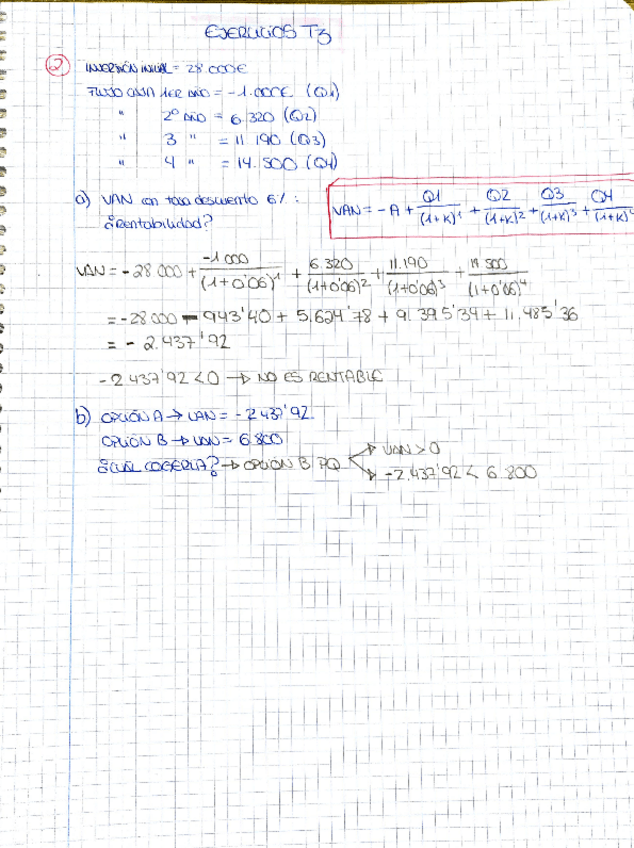 EJERCICIOS T3
2
INVERSIÓN INICIAL = 28 000€
FLUJO CAJA 1ER AÑO = -1.000€ (Q1)
" 2º AÑO = 6.320 (Q2)
" 3 " = 11 190 (Q3)
" 4 " = 14.500 (Q4)
a) VAN con tasa descuento 6% :
¿Rentabilidad?
VAN = -A + Q1/(1+K)^1 + Q2/(1+K)^2 + Q3/(1+K)^3 + Q4/(1+K)^4
VAN = -28 000 + -1 000/(1+0'06)^1 + 6.320/(1+0'06)^2 + 11.190/(1+0'06)^3 + 14 500/(1+0'06)^4
= -28 000 - 943'40 + 5.624'78 + 9.395'34 + 11.485'36
= - 2.437'92
-2 437'92 < 0 → NO ES RENTABLE
b) OPCIÓN A → VAN = -2 437'92.
OPCIÓN B → VAN = 6.800
¿CUÁL COGERÍA? → OPCIÓN B PQ → VAN > 0
→ -2.437'92 < 6.800